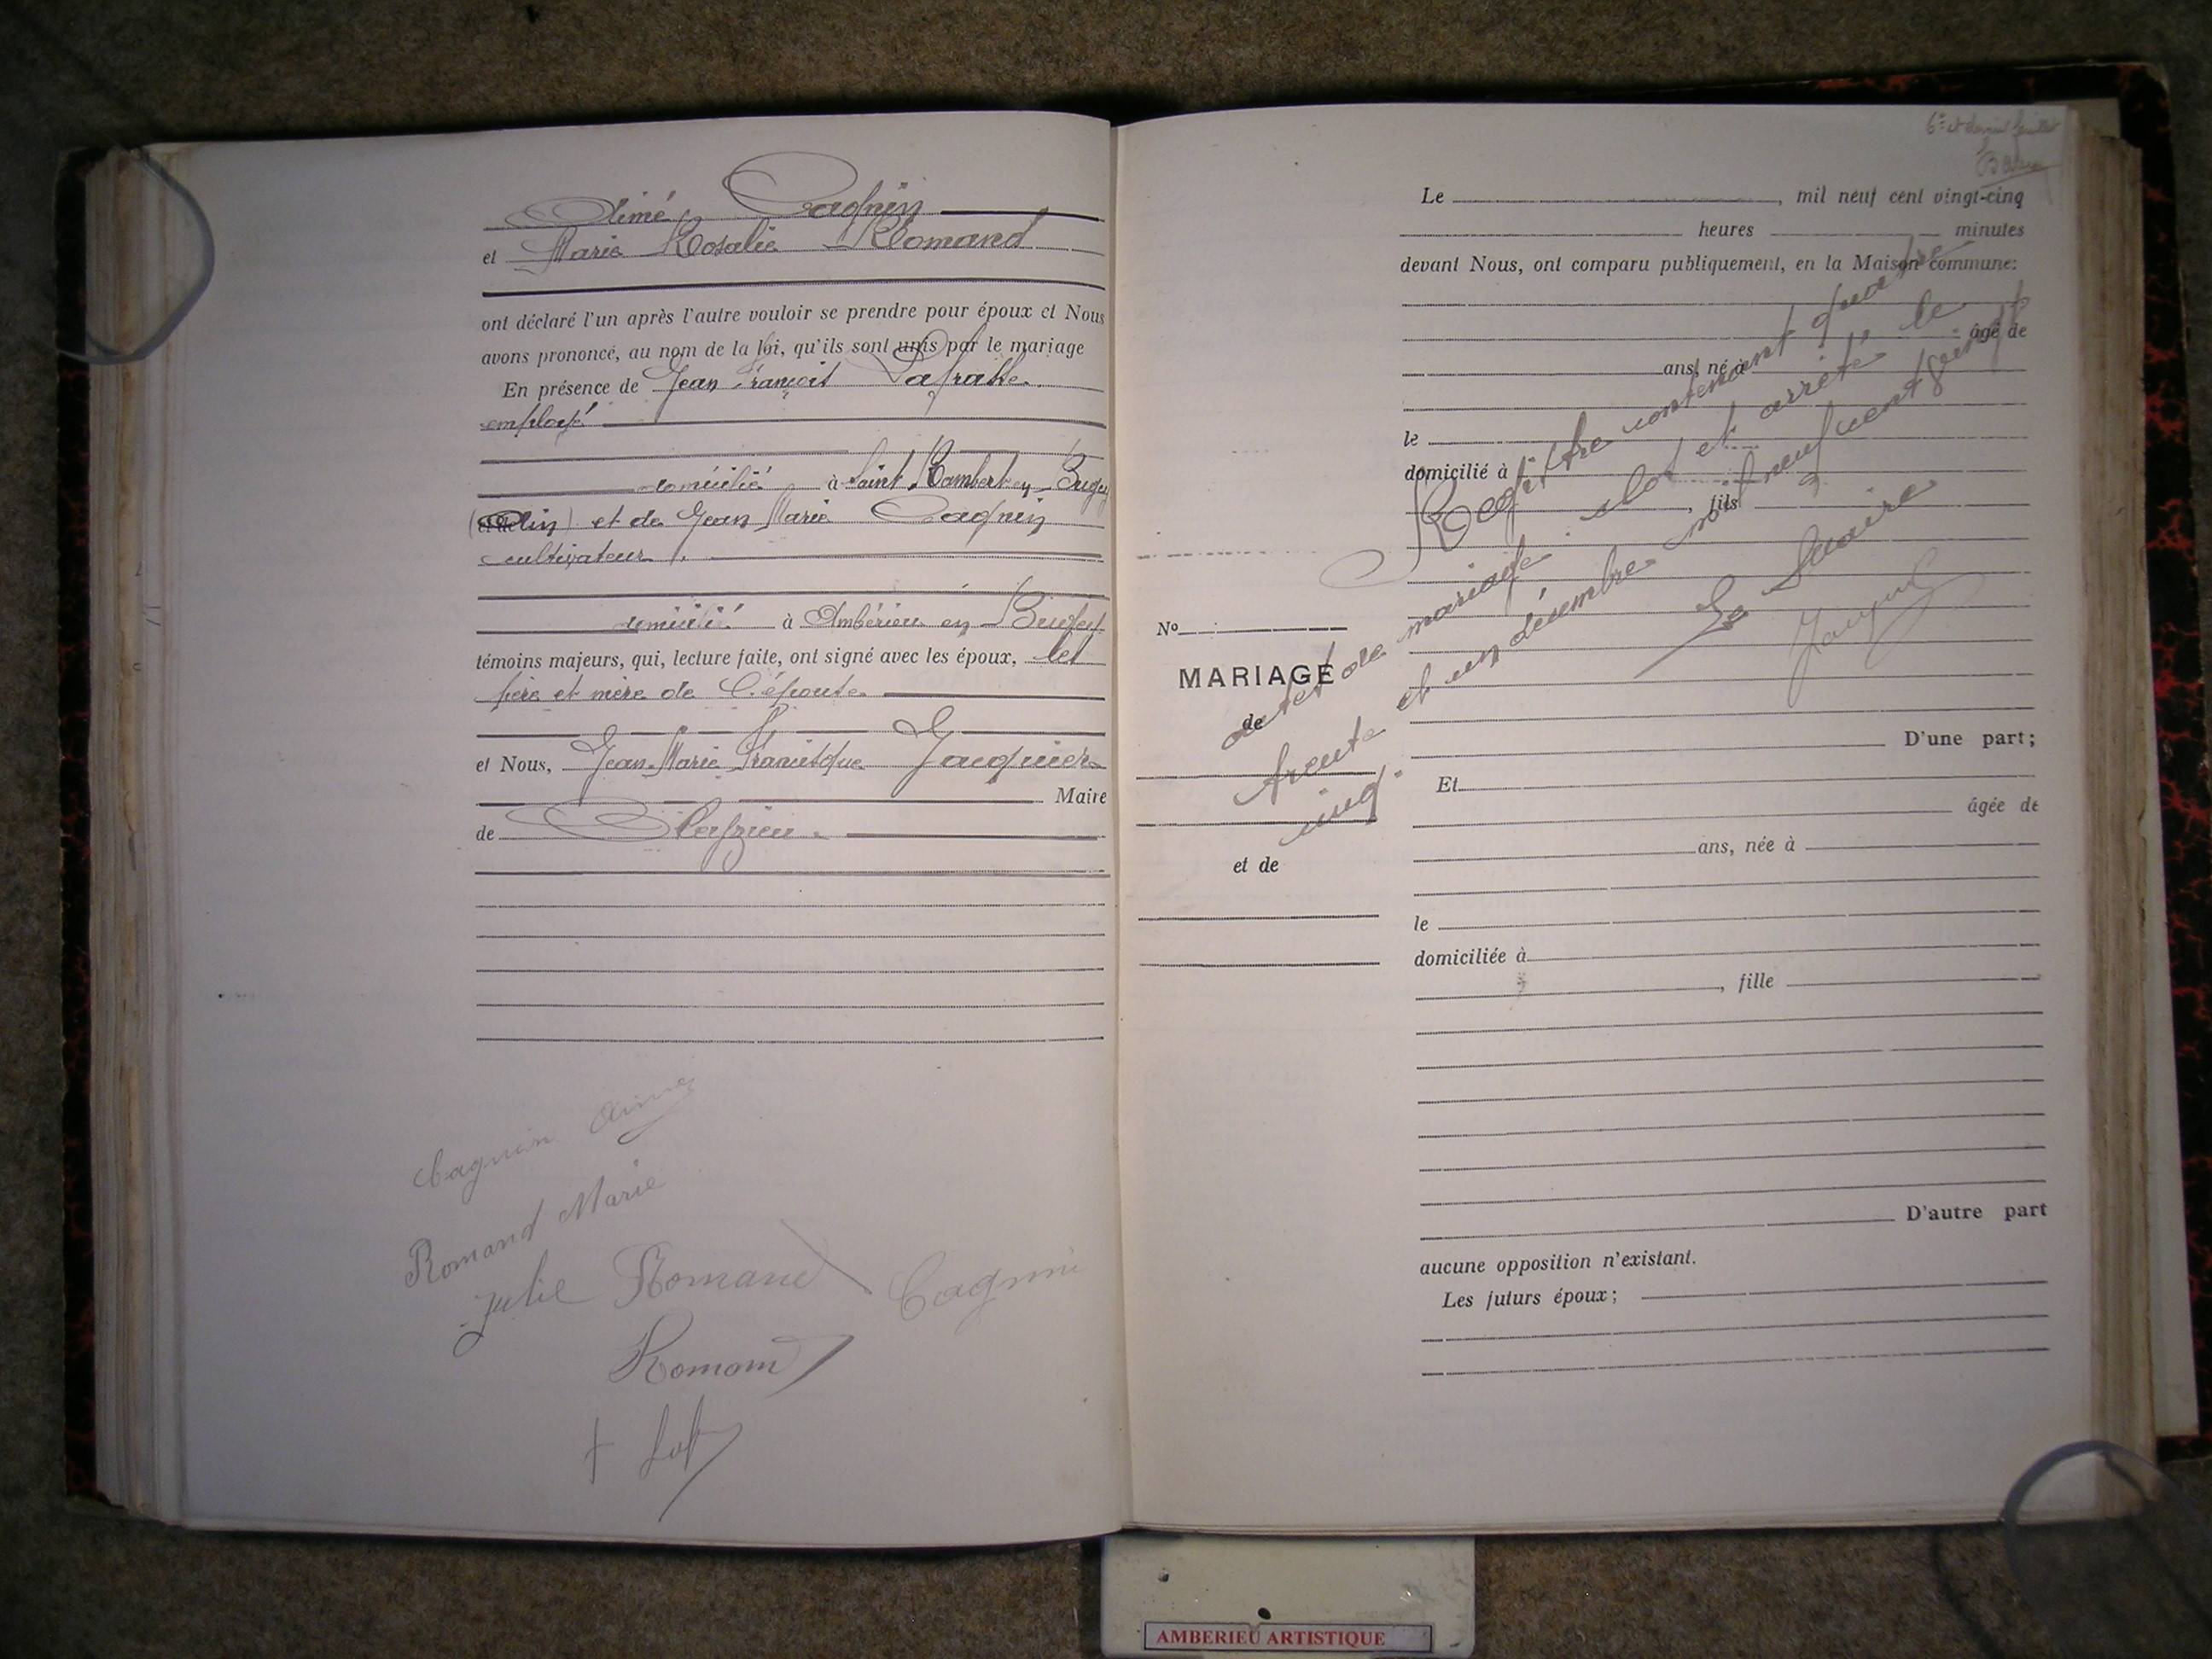 Aimé Cagnin
et Marie Rosalie Romand
ont déclaré l'un après l'autre vouloir se prendre pour époux et Nous
avons prononcé, au nom de la loi, qu'ils sont unis par le mariage
En présence de Jean François
employé
domicilié à Saint Rambert en Bugey
(Ain) et de Jean Marie Cagnin
cultivateur
domicilié à Ambérieu en Bugey
témoins majeurs, qui, lecture faite, ont signé avec les époux, les
père et mère de l'épouse
et Nous, Jean-Marie Francisque Jacquier
Maire
de Cleyzieu.
Cagnin Aimé
Romand Marie
Julie Romand
Cagnin
Romand
6e et dernier feuillet
Le , mil neuf cent vingt-cinq
heures minutes
devant Nous, ont comparu publiquement, en la Maison commune:
âgé de
ans, né à
le
domicilié à
, fils
Registre contenant quatre
actes de mariage clos et arrêté le
trente et un décembre mil neuf cent vingt
cinq.
Le Maire
Jacquier
No
MARIAGE
de
et de
D'une part;
Et
âgée de
ans, née à
le
domiciliée à
, fille
D'autre part
aucune opposition n'existant.
Les futurs époux;
AMBERIEU ARTISTIQUE